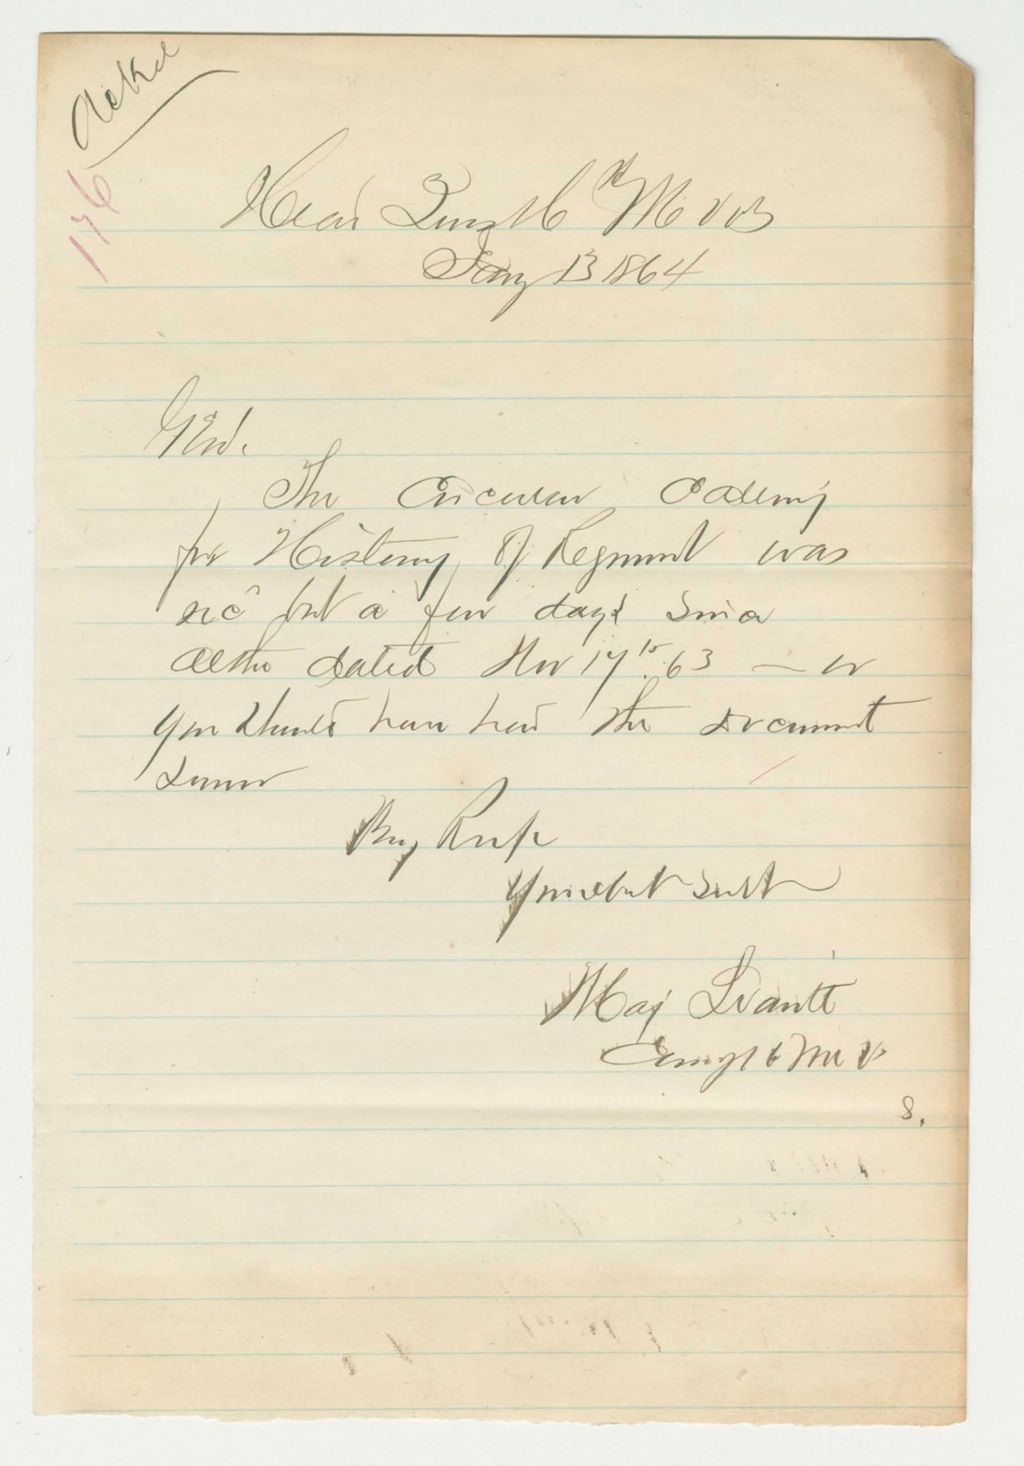 Ackd
176
Head Qurs 16th Me Vols
Jany 13 1864
Genl.
The Circular calling
for History of Regiment was
rec'd but a few days since
altho dated Nov 17th. 63 — or
you should have had the document
sooner
Very Resp
Your obt Servt
Maj
Comg 16 Me V
8.